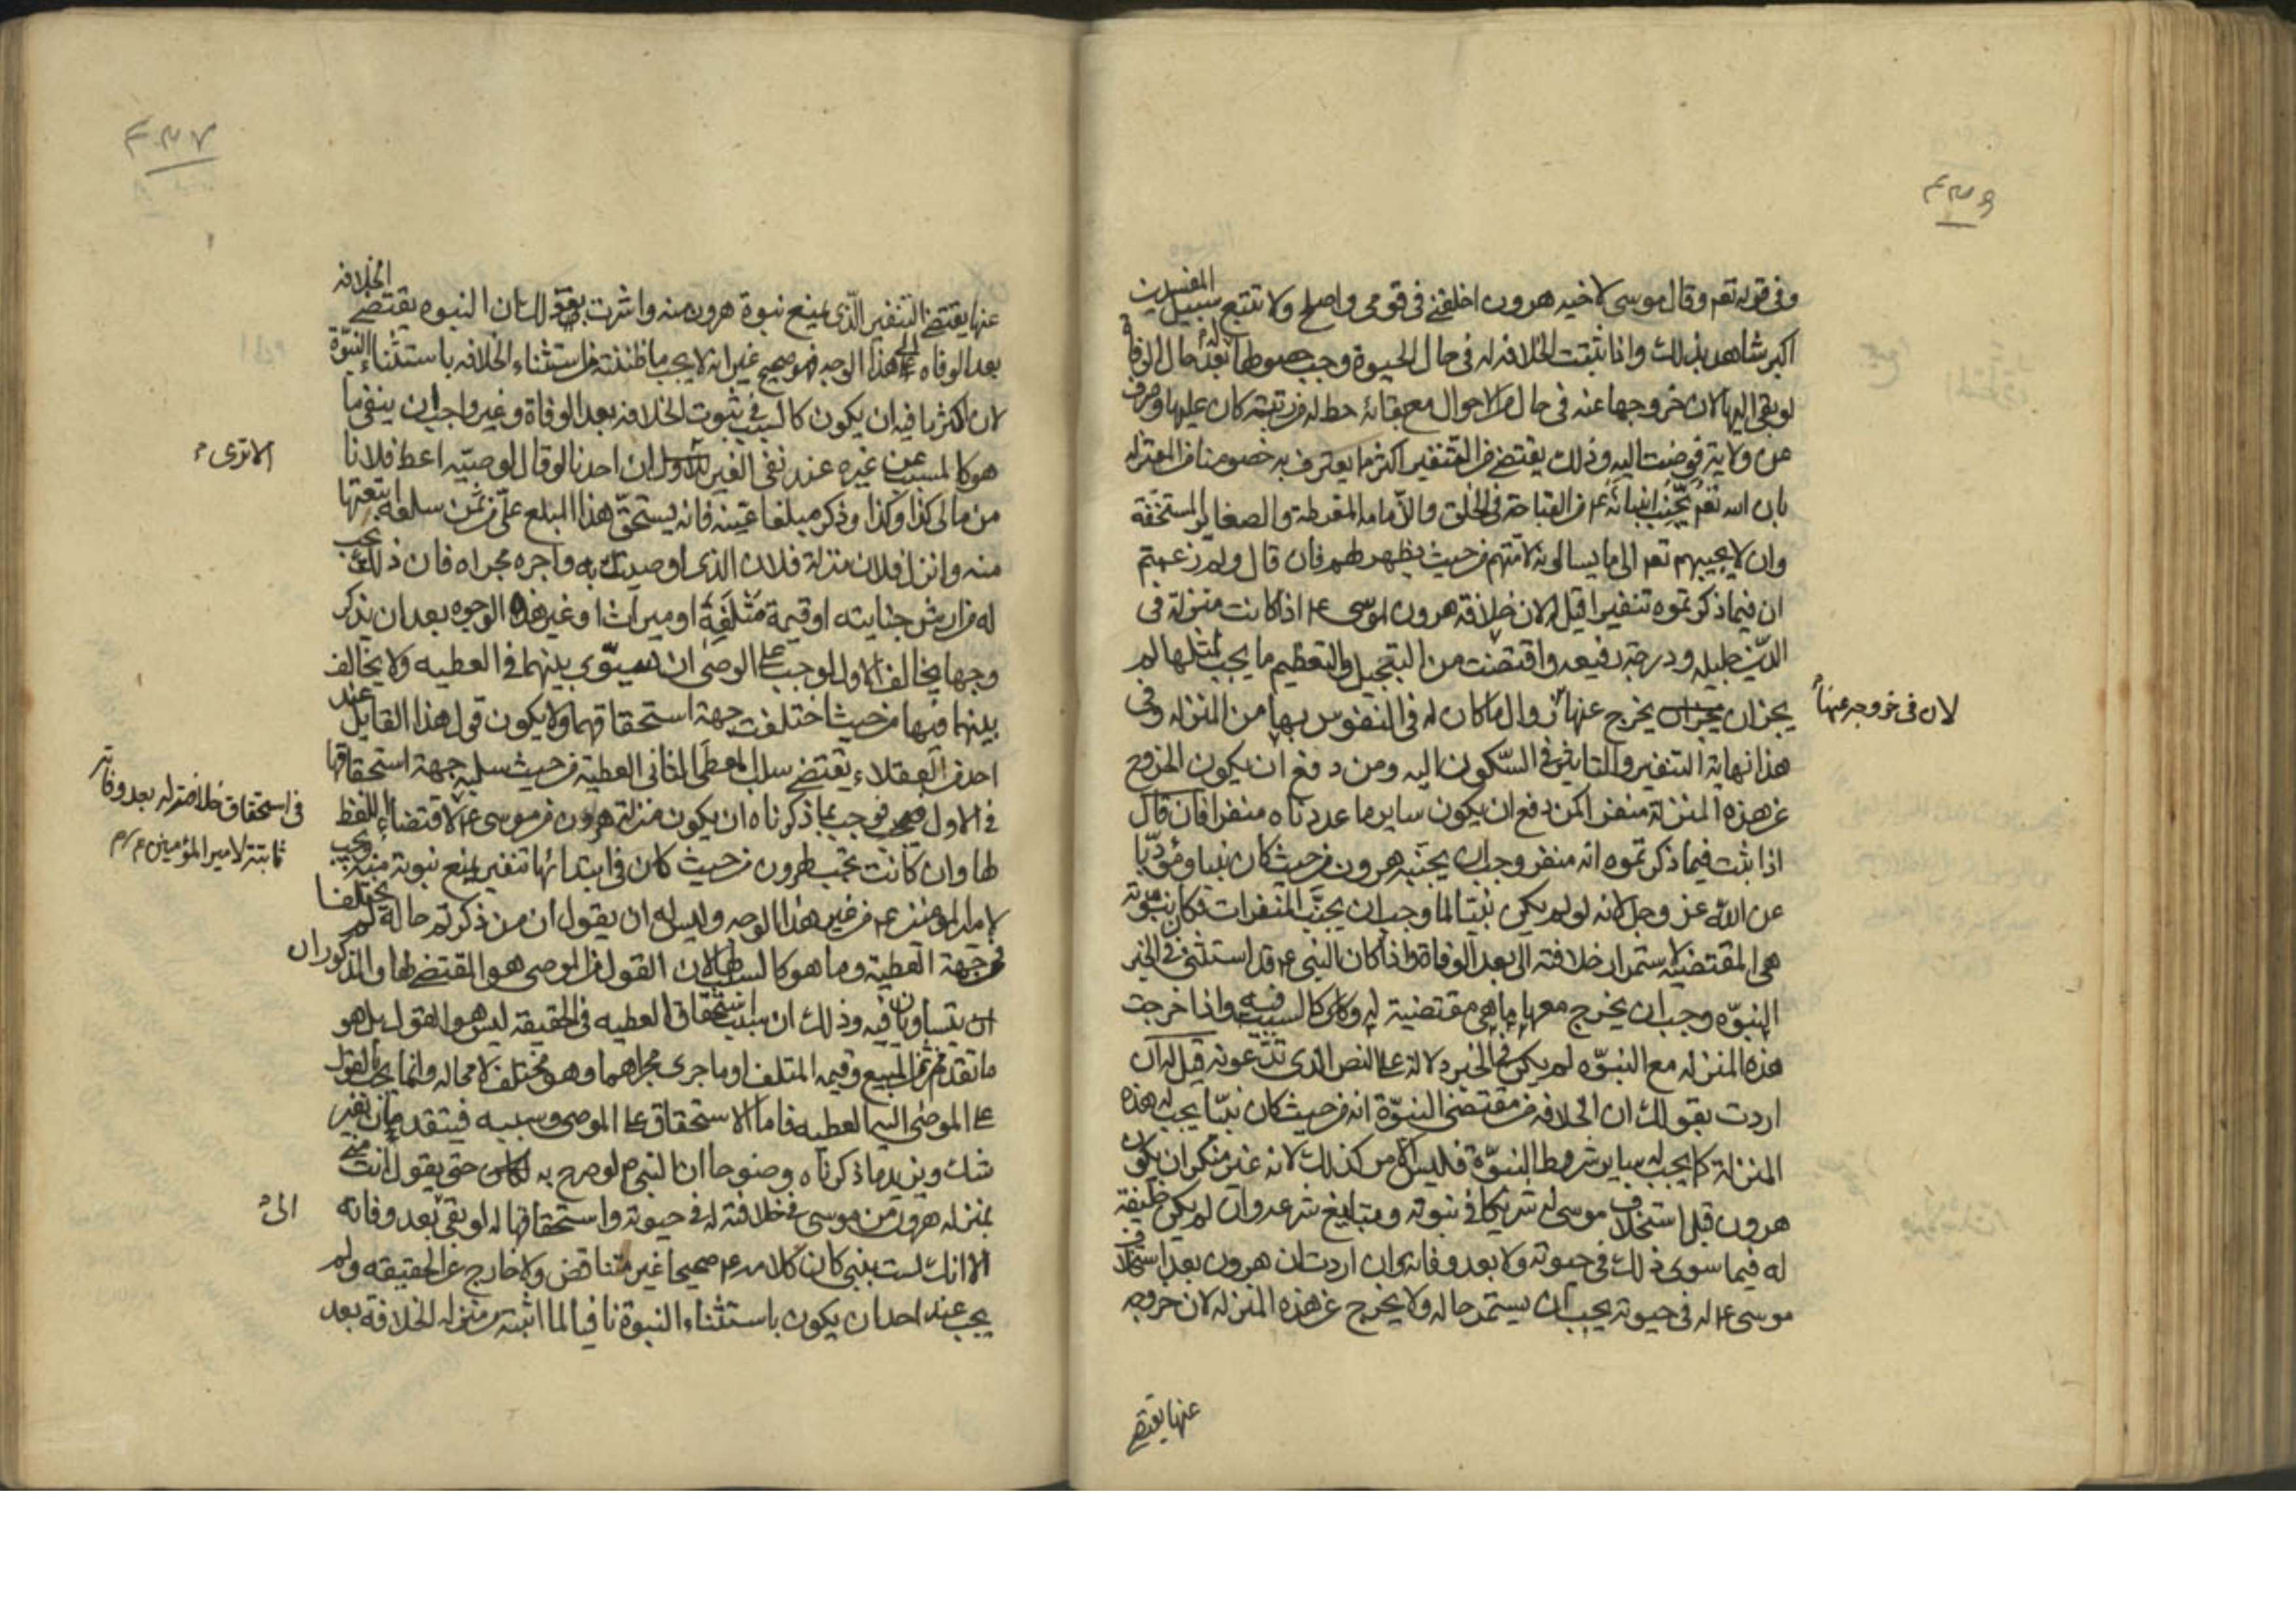 وفى قوله تعم وقال موسى لاخيه هرون اخلفنى فى قومى واصلح ولا تتبع سبيل المفسدين
اكبر شاهد بذلك واذا ثبتت الخلافه له فى حال الحيوة وجب حصولها له بعد حال الوفاة
لو بقى اليها لان خروجها عنه فى حال من الاحوال مع بقائه حط له من رتبته كان عليها وصرف
عن ولاية فوضت اليه وذلك يقتضے من التنفير اكثر مما يعترف به خصومنا من المعتزله
بان الله تعم يجنب انبيائه ع م من القباحة فى الخلق والدمامة المفرطة والصغاير المستخفة
وان لا يجيبهم تعم الى ما يسالونه لامتهم من حيث يظهر لهم فان قال ولم زعمتم
ان فيما ذكرتموه تنفيرا قيل له لان خلافة هرون لموسى ع م اذا كانت منزلة فى
الدين جليله ودرجة رفيعه واقتضت من التبجيل والتعظيم ما يجب لمثلها لم
يجز ان يخرج عنها زوال ما كان له فى النفوس بها من المنزله وفى
لان فى خروجه عنها
هذا نهاية التنفير والتاثير فى السكون اليه ومن دفع ان يكون الخروج
عن هذه المنزلة منفرا كمن دفع ان يكون ساير ما عددناه منفرا فان قال
اذا ثبت فيما ذكرتموه انه منفر وجب ان يجنبه هرون من حيث كان نبيا ومؤديا
عن الله عز وجل لانه لو لم يكن نبيا لما وجب ان يجنب المنفرات فكان نبوته
هى المقتضية لاستمرار خلافته الى بعد الوفاة واذا كان النبى ع م قد استثنى فى الخبر
النبوه وجب ان يخرج معها ما هى مقتضية له وكالسبب فيه واذا خرجت
هذه المنزله مع النبوه لم يكن فى الخبر دلالة على النص الذى تدعونه قيل له ان
اردت بقولك ان الخلافه من مقتضى النبوة انه من حيث كان نبيا يجب له هذه
المنزلة كما يجب له ساير شروط النبوة فليس الامر كذلك لانه غير منكر ان يكون
هرون قبل استخلاف موسى له شريكا فى نبوته وتبليغ شرعه وان لم يكن خليفة
له فيما سوى ذلك فى حيوته ولا بعد وفاته وان اردت ان هرون بعد استخلاف
موسى ع م له فى حيوته يجب ان يستمر حاله ولا يخرج عن هذه المنزله لان خروجه
عنها يقتضے
عنها يقتضے التنفير الذى يمنع نبوة هرون منه واشرت بقولك ان النبوه يقتضے الخلافه
بعد الوفاه الى هذا الوجه فهو صحيح غير انه لا يجب ما ظننته من استثناء الخلافه باستثناء النبوة
لان اكثر ما فيه ان يكون كالسبب فى ثبوت الخلافه بعد الوفاة وغير واجب ان ينفى ما
هو كالمسبب عن غيره عند نفى الغير ان احدنا لو قال لوصيه اعط فلانا
الا ترى
من مالى كذا وكذا وذكر مبلغا عينه فانه يستحق هذا المبلغ على من ثمن سلعة ابتعتها
منه وانزل فلان منزلة فلان الذى اوصيتك به واجره مجراه فان ذلك يجب
له من ارش جنايته او قيمة متلفة او ميراث او غير هذه الوجوه بعد ان يذكر
وجها يخالف الاول لوجب على الوصى ان يسوى بينهما فى العطيه ولا يخالف
بينهما فيها من حيث اختلفت جهة استحقاقهما ولا يكون قول هذا القايل عند
احد من العقلاء يقتضے سلب المعطى الثانى العطية من حيث سلبه جهة استحقاقها
فى الاول فوجب بما ذكرناه ان يكون منزلة هرون من موسى ع م لاقتضاء اللفظ
فى استحقاق خلافته له بعد وفاته
ثابتة لامير المؤمنين ع م
لها وان كانت تجب لهرون من حيث كان فى ابتدائها تنفير يمنع نبوته منه ويجب
لامير المومنين ع م من غير هذا الوجه وليس له ان يقول ان من ذكرتم حاله لم يختلفا
فى جهة العطية وما هو كالسبب لها لان القول من الموصى هو المقتضے لها والمذكوران
يتساويان فيه وذلك ان سبب استحقاق العطيه فى الحقيقه ليس هو القول بل هو
ما تقدم من ثمن المبيع وقيمه المتلف او ما جرى مجراهما وهو مختلف لا محاله وانما يجب بالقول
على الموصى اليه العطيه فاما الاستحقاق على الموصى وسببه فيتقدمان بغير
شك ويزيد ما ذكرناه وضوحا ان النبى م لو صرح به حتى يقول انت منى
بمنزله هرون من موسى فى خلافته له فى حيوته واستحقاقها له لو بقى بعد وفاته
الى
الا انك لست بنبى كان كلامه ع م صحيحا غير متناقض ولا خارج عن الحقيقه ولم
يجب عند احد ان يكون باستثناء النبوة نافيا لما اثبته من منزله الخلافة بعد